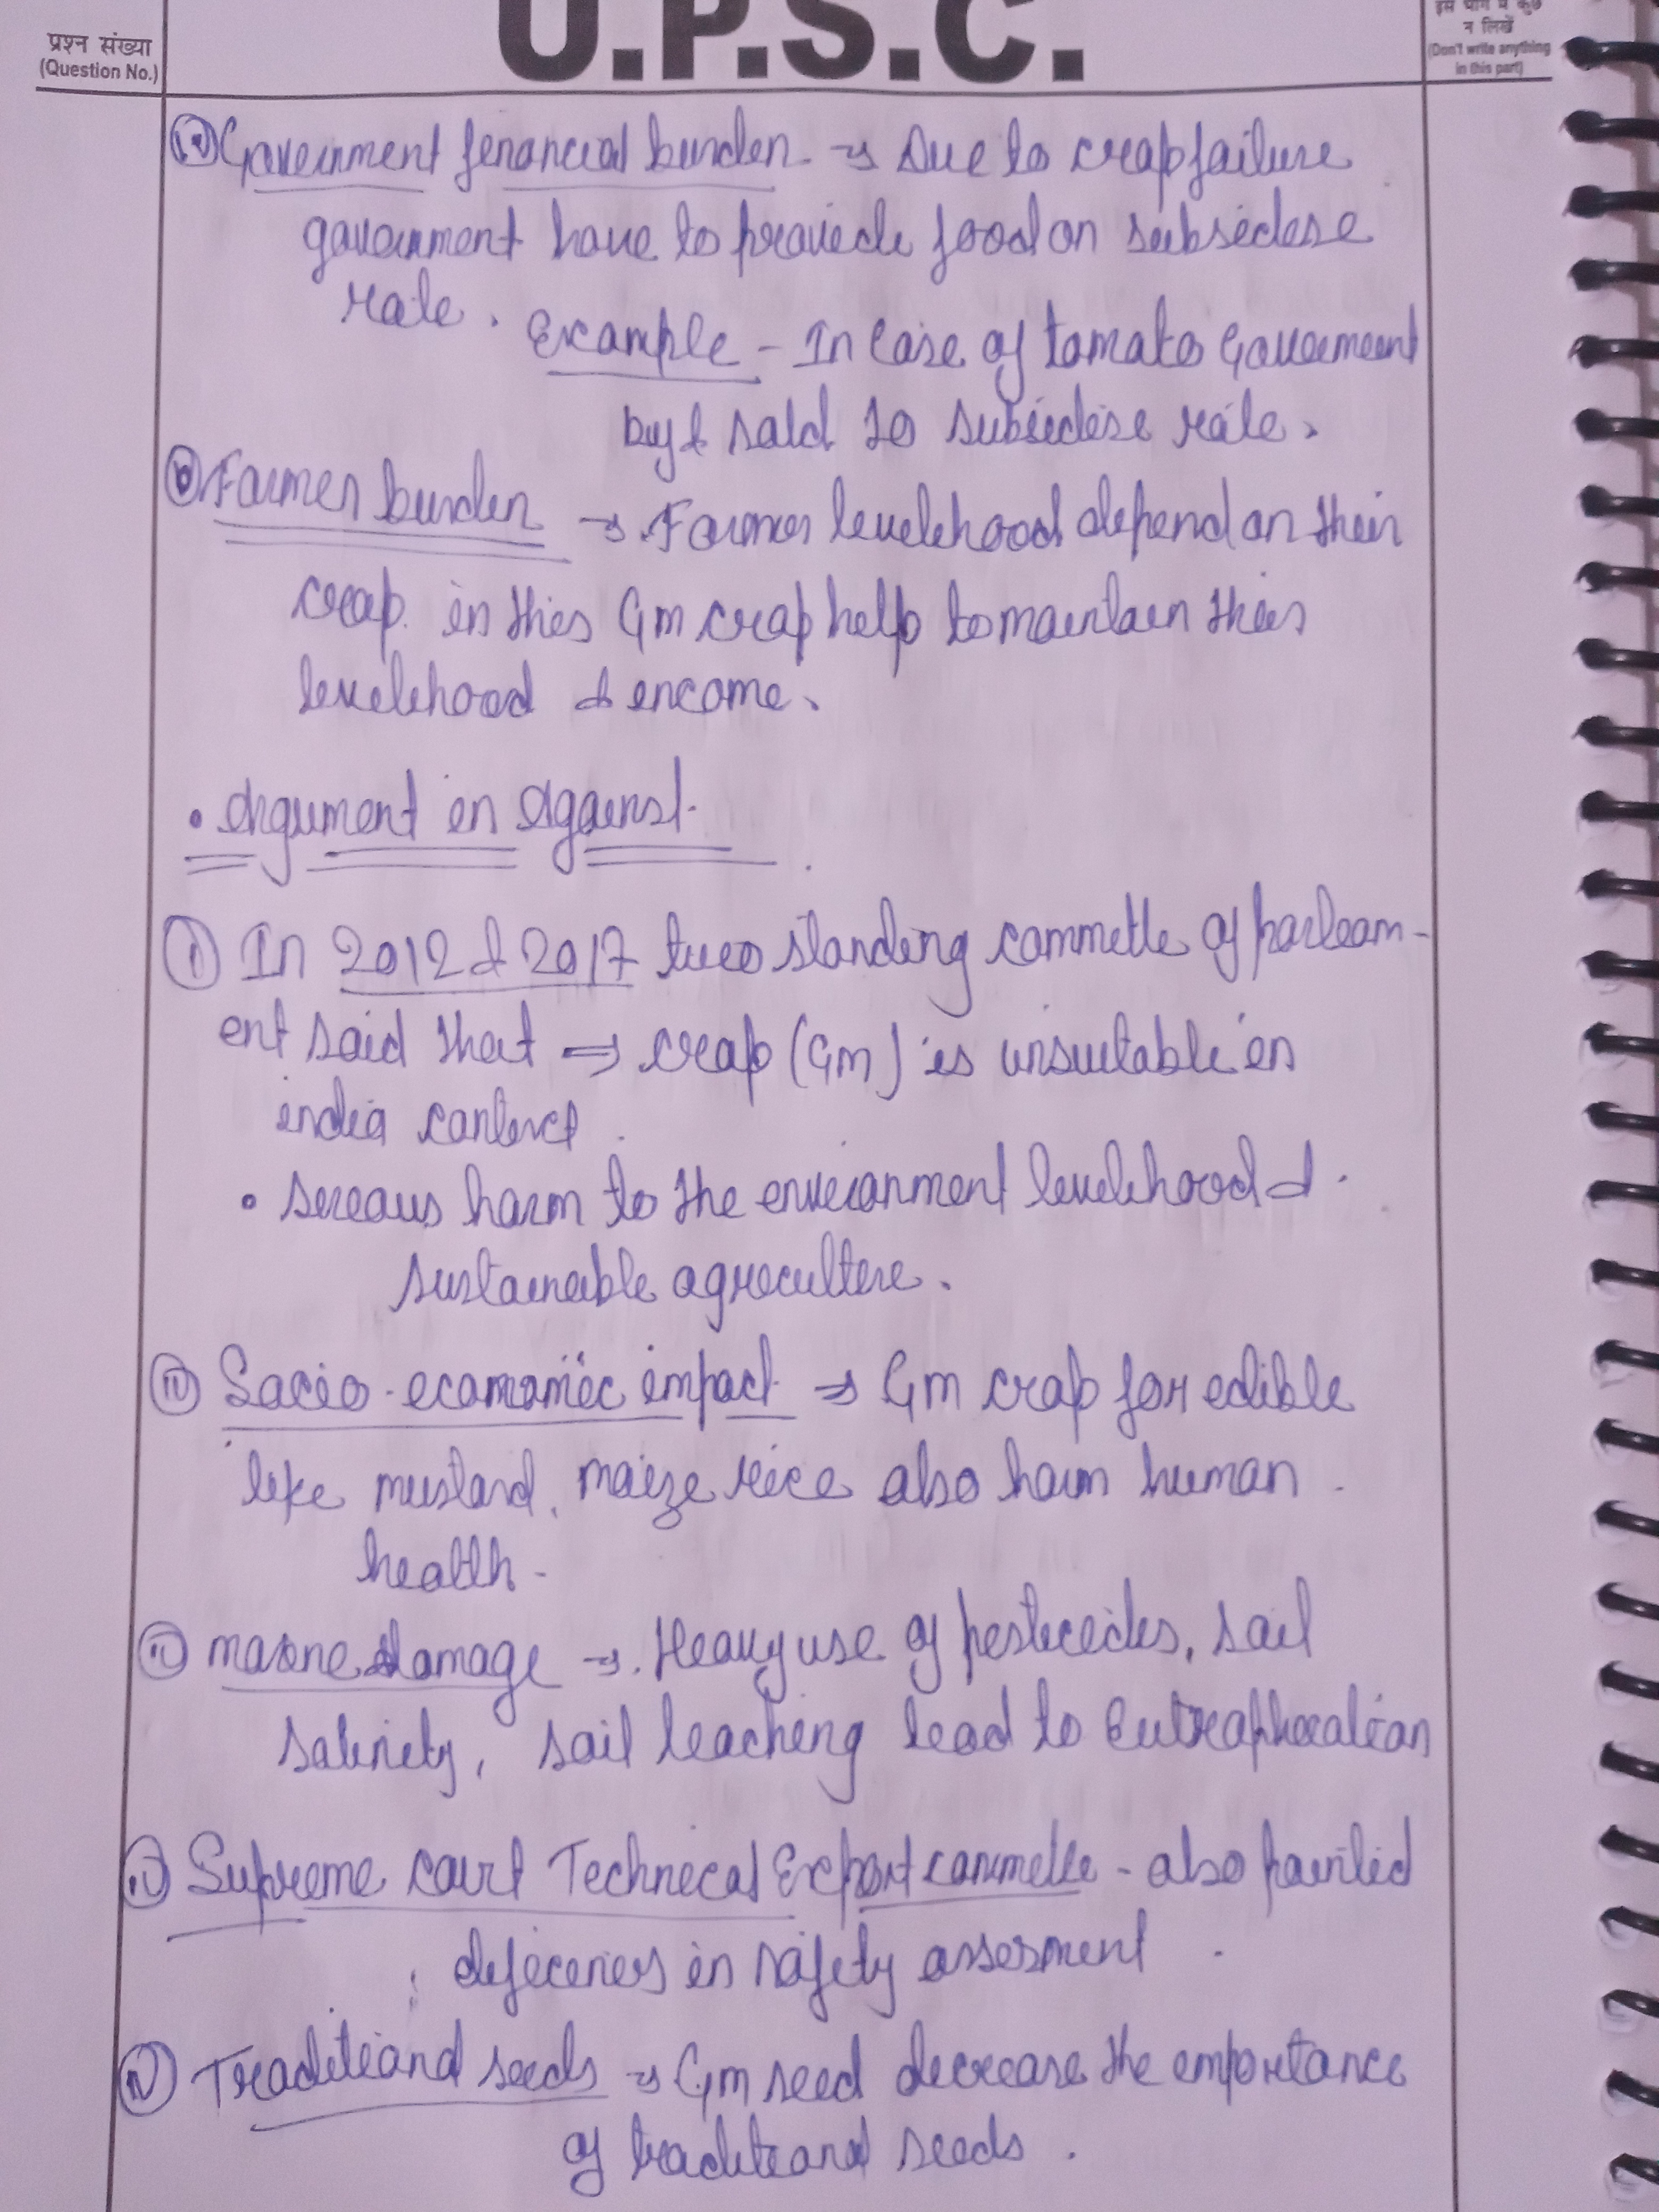 प्रश्न संख्या
(Question No.)
U.P.S.C.
इस भाग में कुछ
न लिखें
(Don't write anything
in this part)
Government financial burden → Due to crop failure
government have to provide food on subsidise
rate. Example - In case of tomato Government
buy & sold to subsidise rate.
Farmer burden → Farmer livelihood depend on their
crop. in this Gm crop help to maintain their
livelihood & income.
• Argument in Against.
① In 2012 & 2017 two standing committe of parliam-
ent said that ⇒ crop (Gm) is unsuitable in
india context.
• serious harm to the environment livelihood &
sustainable agriculture.
Socio-economic impact → Gm crop for edible
like mustard, maize rice also harm human
health -
damage → Heavy use of pesticides, soil
salinity, soil leaching lead to Eutrophication
Supreme court Technical Expert committe - also pointed
in safety assesment
Traditional seeds → Gm seed decrease the importance
of traditional seeds.